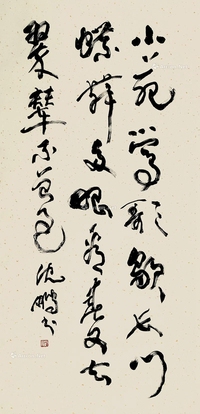 小苑莺歌歇长门
蝶舞多眼看春又去
翠辇不曾过 沈鹏书